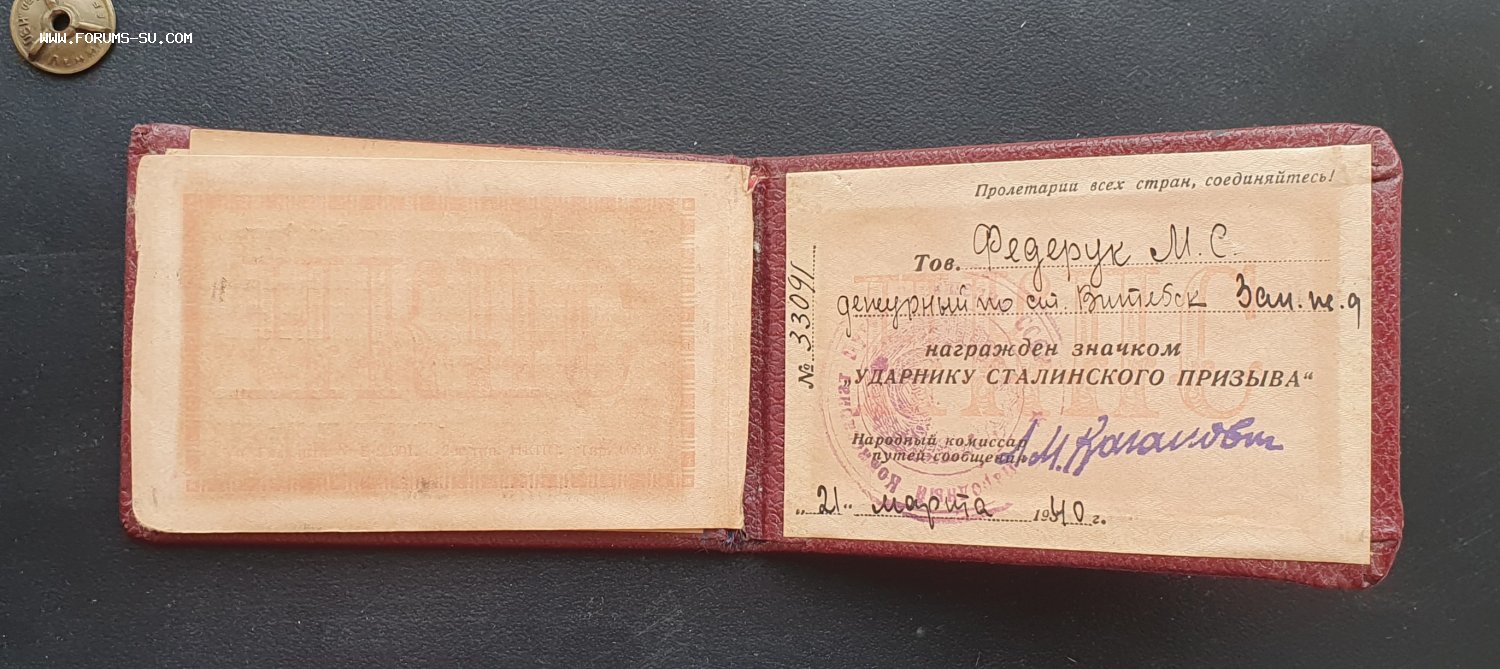 WWW.FORUMS-SU.COM
Пролетарии всех стран, соединяйтесь!
№ 33091
Тов. Федерук М. С.
дежурный по ст. Витебск Зап. ж. д
награжден значком
„УДАРНИКУ СТАЛИНСКОГО ПРИЗЫВА“
Народный комиссар
путей сообщения Л М. Каганович
„21“ марта 1940 г.
НКПС